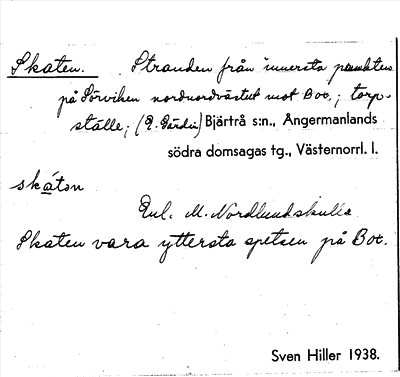 Skaten. Stranden från innersta punkten
på Sörviken nordnordvästut mot Bot.; torp-
ställe; (E. Gårdin) Bjärtrå s:n., Ångermanlands
södra domsagas tg., Västernorrl. l.
skátən
Enl. M. Nordlundskulla
Skaten vara yttersta spetsen på Bot.
Sven Hiller 1938.